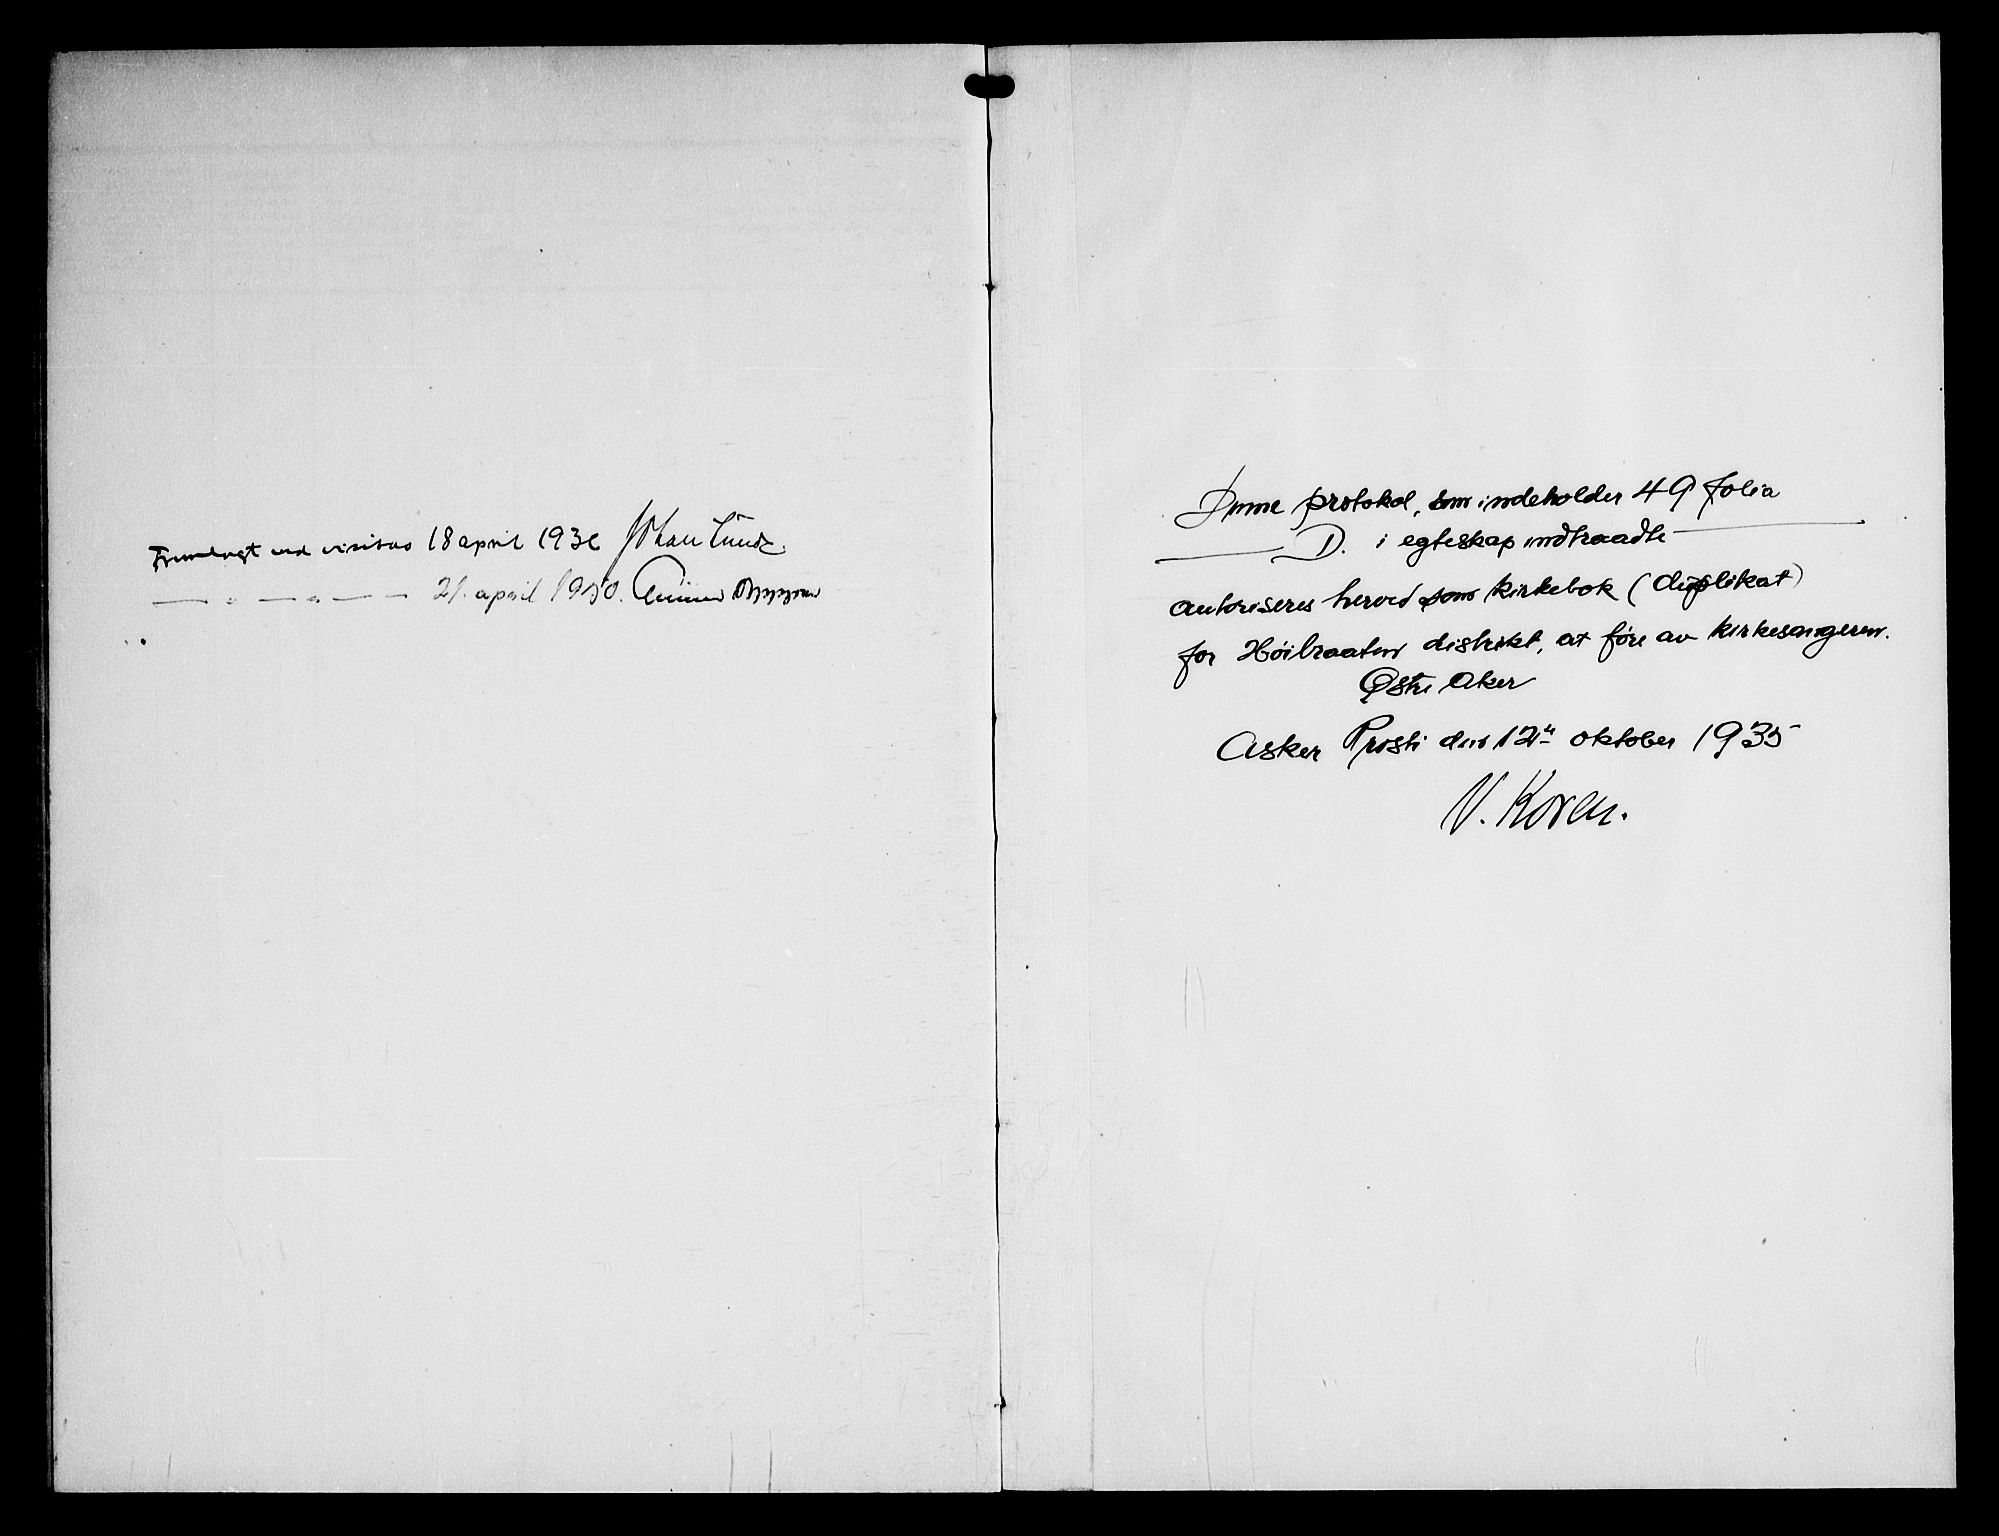 Fremlagt ved visitas 18 april 193 Johan Lunde.
— " — " — 21. april 1950.
Denne protokol, som indeholder 49 folia
D. i egteskap indtraadte
autoriseres herved som kirkebok (duplikat)
for Høibraaten distrikt, at føre av kirkesangeren.
Østre Aker
Asker Prosti den 12te oktober 1935
V. Koren.